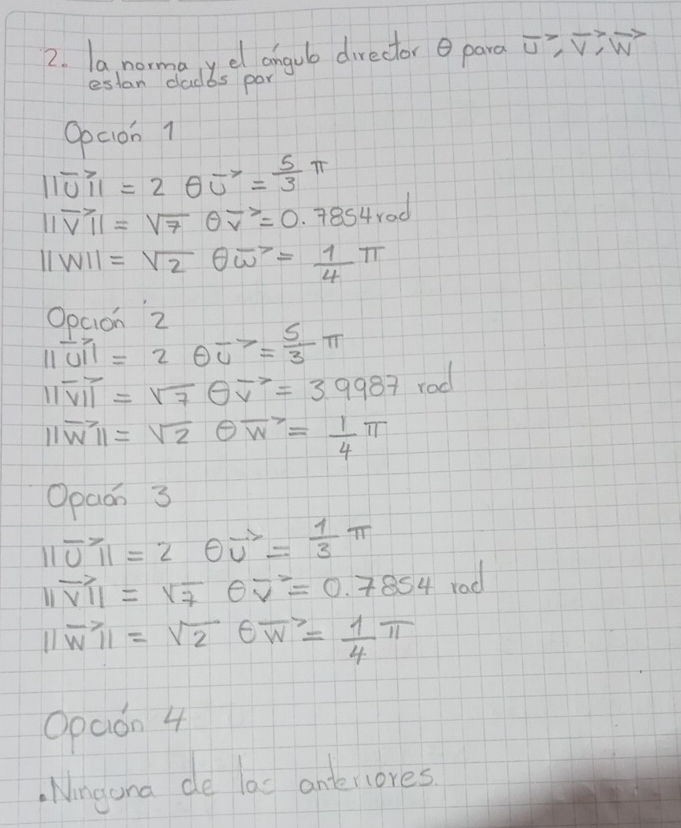 2. la norma y el ángulo director θ para U⃗, V⃗, W⃗
estan dados por
Opción 1
||U⃗|| = 2 θU⃗ = 5/3 π
||V⃗|| = √7 θV⃗ = 0.7854 rad
||W|| = √2 θW⃗ = 1/4 π
Opción 2
||U⃗|| = 2 θU⃗ = 5/3 π
||V⃗|| = √7 θV⃗ = 3.9987 rad
||W⃗|| = √2 θW⃗ = 1/4 π
Opción 3
||U⃗|| = 2 θU⃗ = 1/3 π
||V⃗|| = √7 θV⃗ = 0.7854 rad
||W⃗|| = √2 θW⃗ = 1/4 π
Opción 4
.Ninguna de las anteriores.